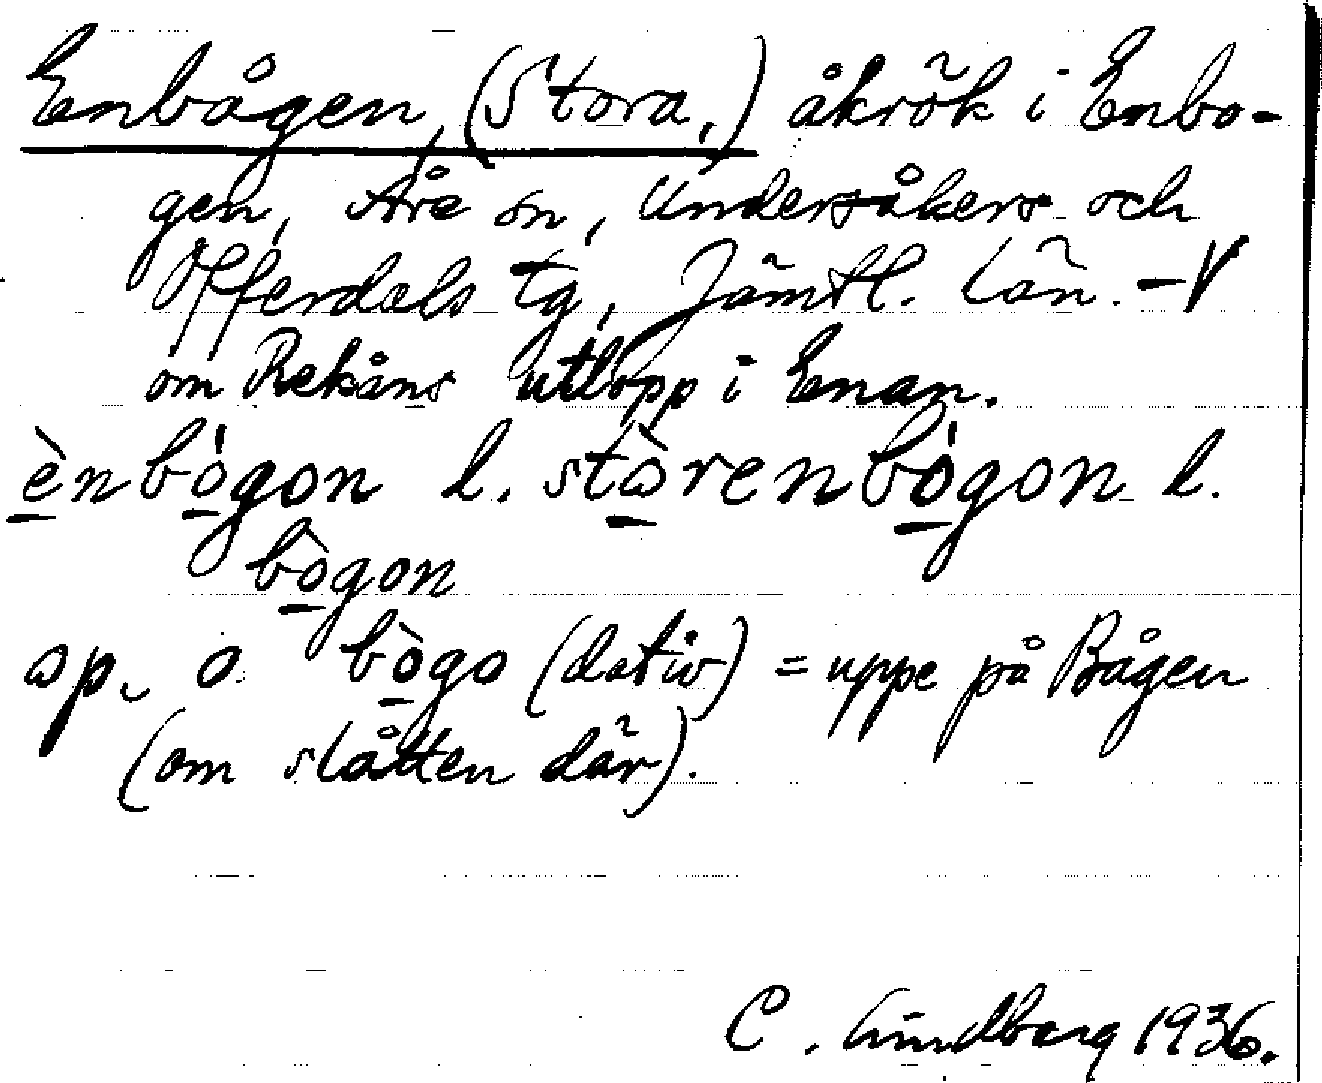 Enbågen, (Stora,) åkrök i Enbo-
gen, Åre sn, Undersåkers och
Offerdals tg, Jämtl. län. - V
om Rekåns utlopp i Enan.
ènbógon l. stòrenbógon l.
bògon
sp. o bògo (dativ) = uppe på Bågen
(om slåtten där).
C. Lindberg 1936.